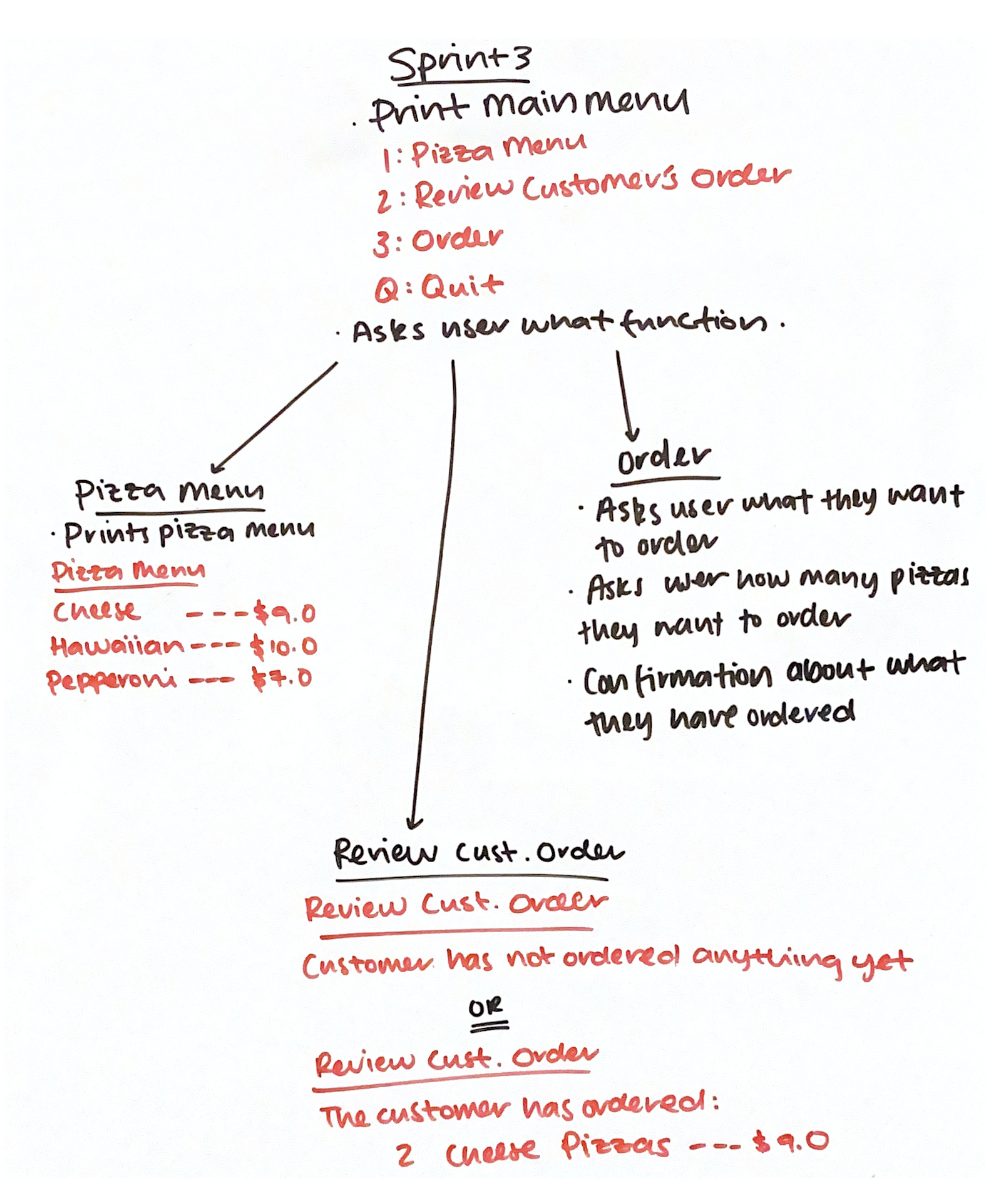 Sprint 3
. Print main menu
1: Pizza Menu
2: Review Customer's order
3: Order
Q: Quit
· Asks user what function.
Pizza Menu
· Prints pizza menu
Pizza Menu
Cheese --- $9.0
Hawaiian --- $10.0
Pepperoni --- $7.0
Order
· Asks user what they want
to order
· Asks user how many pizzas
they want to order
· Confirmation about what
they have ordered
Review Cust. Order
Review Cust. Order
Customer has not ordered anything yet
OR
Review Cust. Order
The customer has ordered:
2 Cheese Pizzas --- $9.0